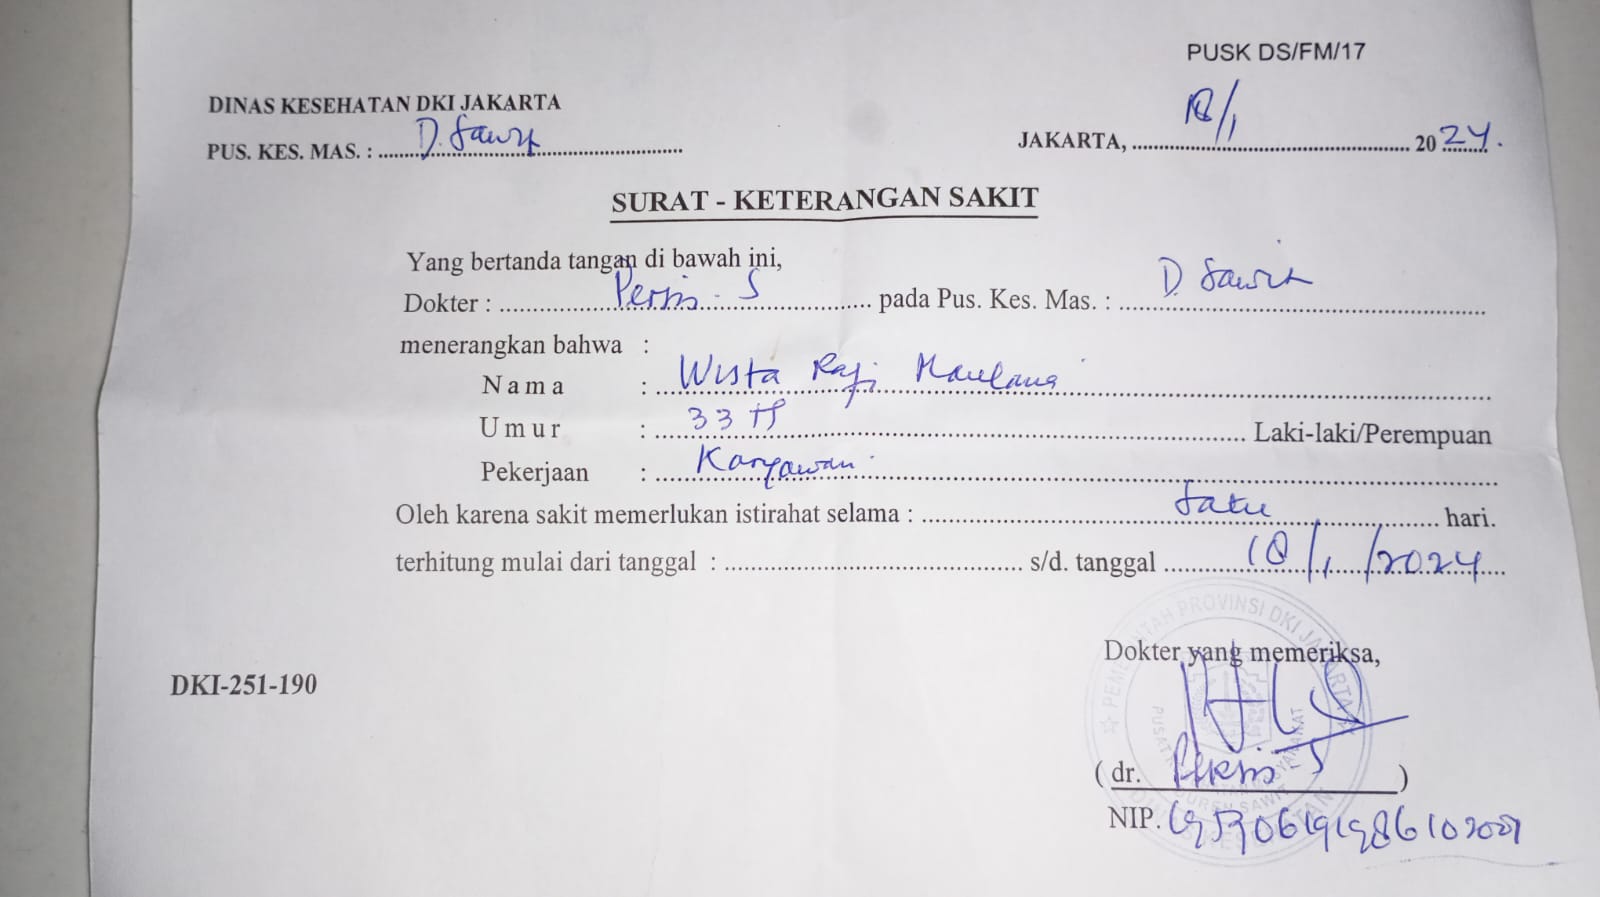 PUSK DS/FM/17
DINAS KESEHATAN DKI JAKARTA
PUS. KES. MAS. : D. Sawit
JAKARTA, 18/1 2024.
SURAT - KETERANGAN SAKIT
Yang bertanda tangan di bawah ini,
Dokter : Persis - S pada Pus. Kes. Mas. : D. Sawit
menerangkan bahwa :
Nama : Wista Raji Maulana
Umur : 33 th Laki-laki/Perempuan
Pekerjaan : Karyawan
Oleh karena sakit memerlukan istirahat selama : Satu hari.
terhitung mulai dari tanggal : s/d. tanggal 18/1/2024
Dokter yang memeriksa,
DKI-251-190
PEMERINTAH PROVINSI DKI JAKARTA
(dr. )
NIP.